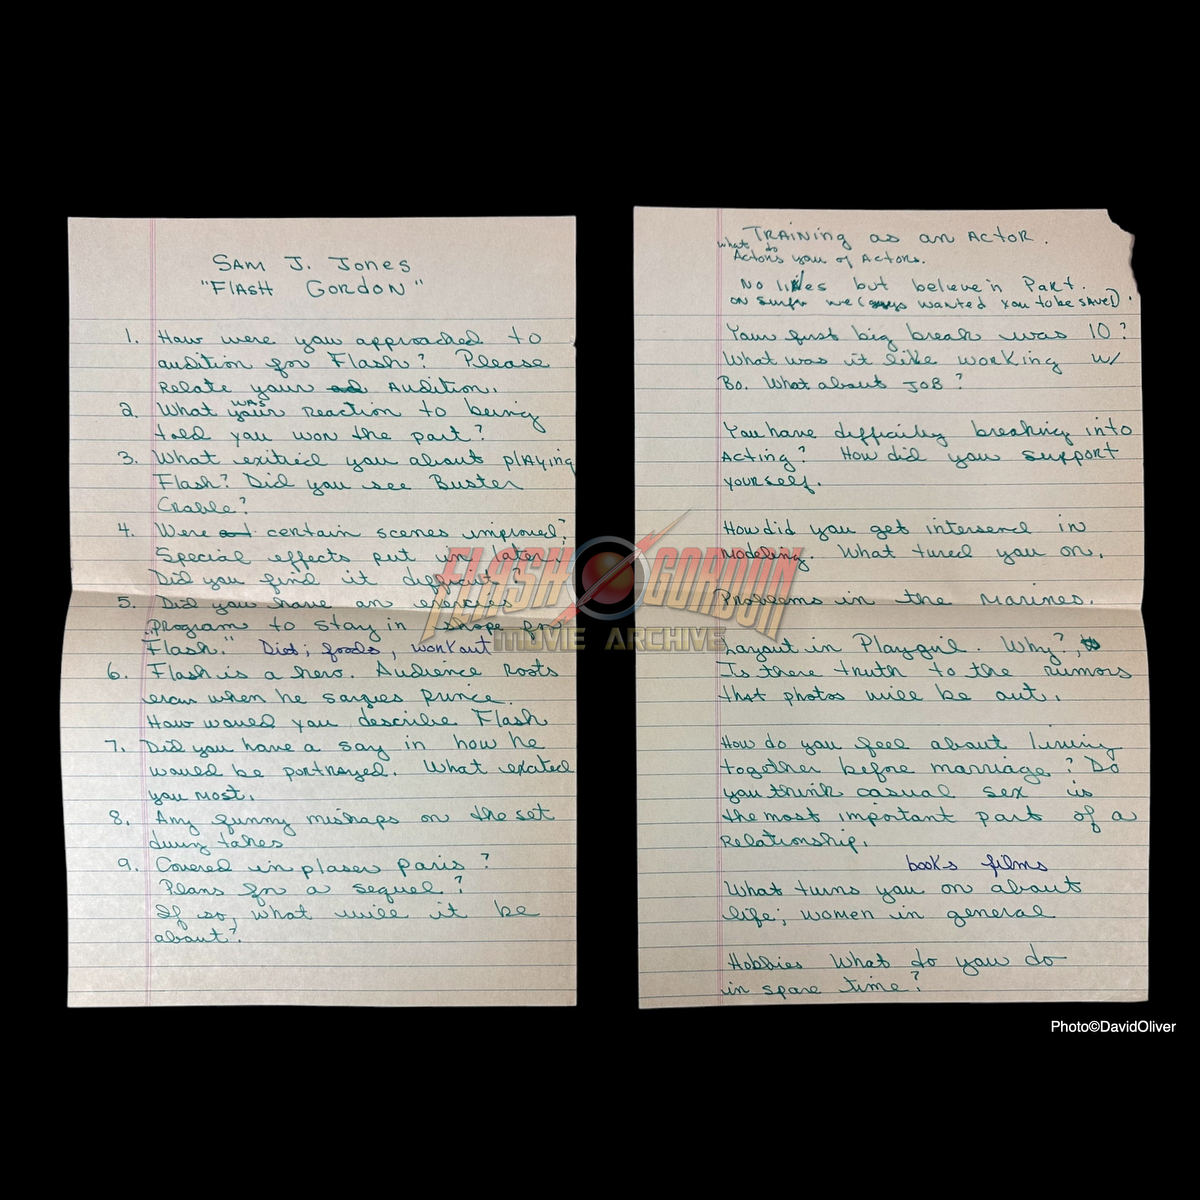 SAM J. JONES
"FLASH GORDON"
1. How were you approached to
audition for Flash? Please
Relate your Audition.
2. What was your reaction to being
told you won the part?
3. What exitied you about plAying
Flash? Did you see Buster
Crable?
4. Were certain scenes improved?
Special effects put in later.
Did you find it difficult?
5. Did you have an
program to stay in shape for
"Flash." Diet; foods, workout
6. Flash is a hero. Audience Roots
when he prince.
How would you describe Flash
7. Did you have a say in how he
would be portrayed. What exated
you most.
8. Any funny mishaps on the set
during takes
9. Covered in plaser paris?
Plans for a sequel?
If so, what will it be
about?
TRAINING as an ActoR.
what do
Actors you of Actors.
No likes but believe in Part.
on we wanted you to be SAVED.
Your first big break was 10?
What was it like working w/
Bo. What about JOB?
You have difficulty breaking into
Acting? How did you support
yourself.
How did you get in
modeling. What turned you on.
Problems in the Marines.
Layout in Playgirl. Why?,
Is there truth to the rumors
that photos will be out.
How do you feel about living
together before marriage? Do
you think casual sex is
the most important part of a
Relationship.
books films
What turns you on about
life; women in general
Hobbies What do you do
in spare time?
FLASH GORDON
MOVIE ARCHIVE
Photo©DavidOliver